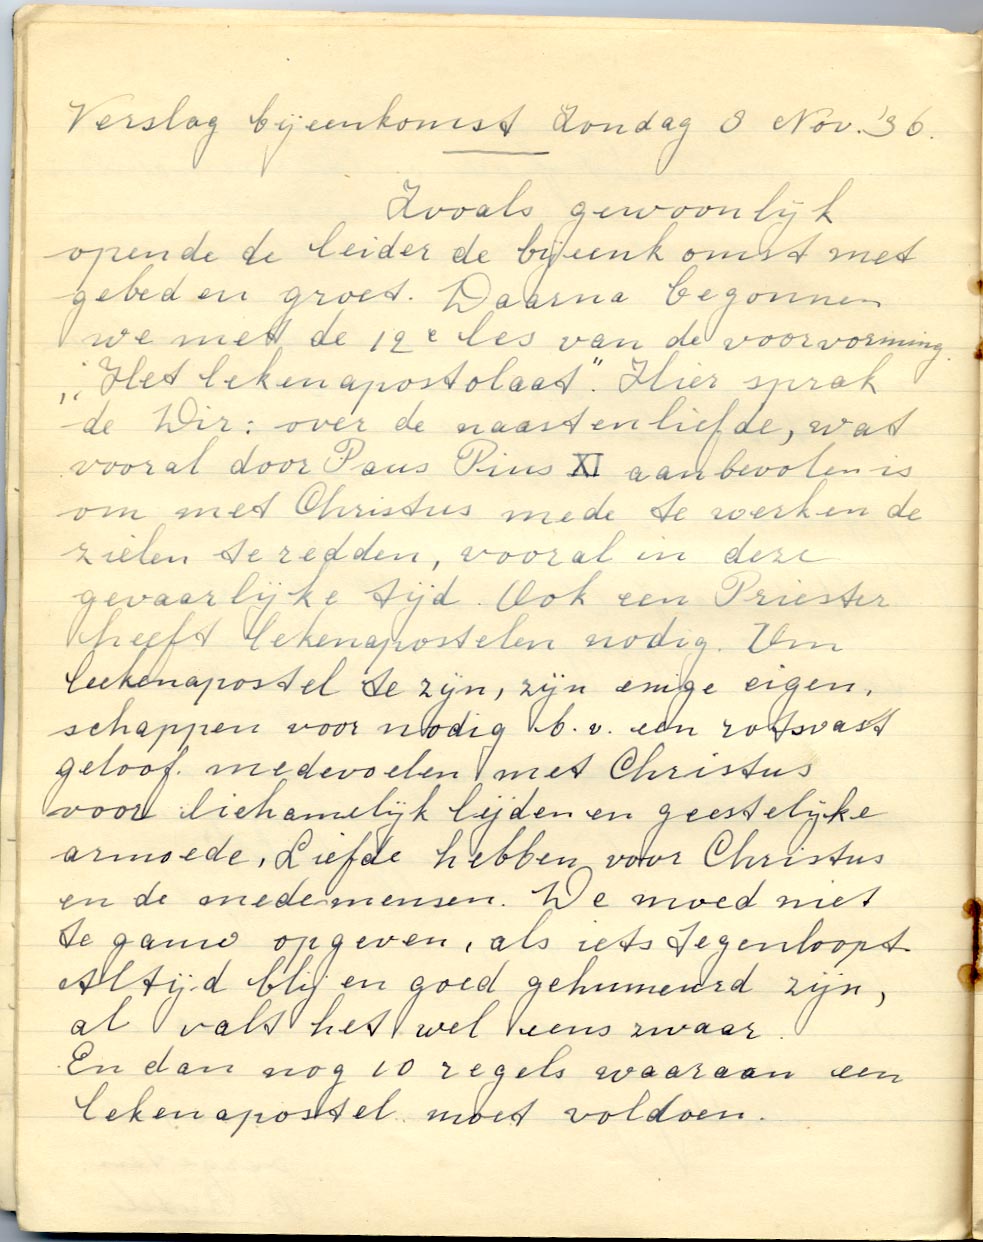 Verslag bijeenkomst Zondag 8 Nov. '36.
Zooals gewoonlijk
opende de leider de bijeenkomst met
gebed en groet. Daarna begonnen
we met de 12e les van de voorvorming.
"Het lekenapostolaat". Hier sprak
de Dir: over de naastenliefde, wat
vooral door Paus Pius XI aanbevolen is
om met Christus mede te werken de
zielen te redden, vooral in deze
gevaarlijke tijd. Ook een Priester
heeft lekenapostelen nodig. Om
leekenapostel te zijn, zijn enige eigen,
schappen voor nodig b.v. een rotsvast
geloof. medevoelen met Christus
voor lichamelijk lijden en geestelijke
armoede, Liefde hebben voor Christus
en de medemensen. De moed niet
te gauw opgeven, als iets tegenloopt
Altijd blij en goed gehumeurd zijn,
al valt het wel eens zwaar.
En dan nog 10 regels waaraan een
lekenapostel moet voldoen.